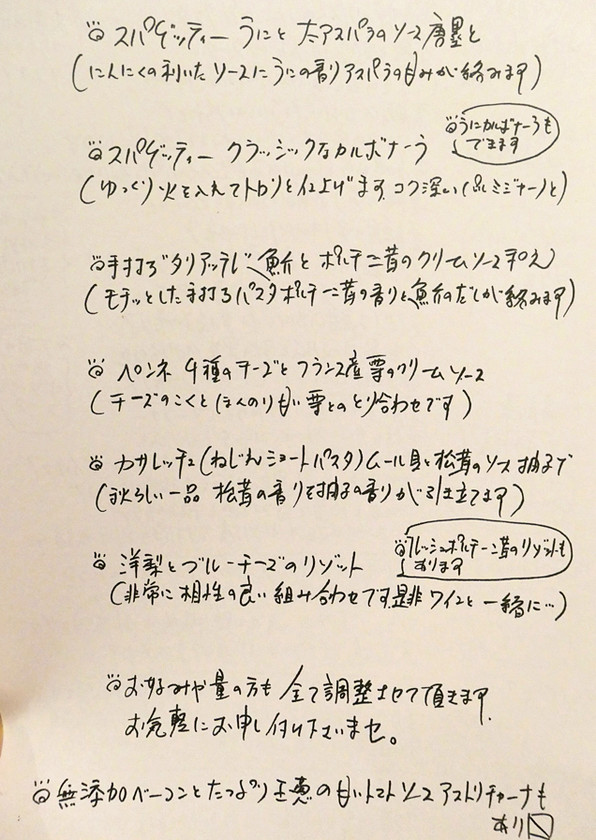 スパゲッティー うにと 太アスパラのソース 唐墨と
(にんにくの利いた ソースに うにの香り アスパラの甘みが絡みます)
スパゲッティー クラッシックなカルボナーラ
うにカルボナーラも
できます
(ゆっくり 火を入れて トロリと仕上げます コク深い(パルミジャーノと)
手打ち タリアッテレ 魚介と ポルチーニ茸のクリームソース和え
(モチッとした手打ちパスタ ポルチーニ茸の香りと 魚介のだしが絡みます)
ペンネ 4種のチーズと フランス産 栗のクリームソース
(チーズのこくと ほんのり甘い 栗との とり合わせです)
カサレッチェ(ねじれショートパスタ)ムール貝と松茸のソース 柚子で
(秋らしい一品 松茸の香りを柚子の香りが引き立てます)
洋梨とブルーチーズのリゾット
フレッシュポルチーニ茸のリゾットも
あります
(非常に 相性の良い 組み合わせです 是非 ワインと 一緒に…)
お好みや量の方も 全て調整させて頂きます
お気軽にお申し付け下さいませ。
無添加ベーコンとたっぷり玉葱の甘いトマトソース アマトリチャーナも
あり〼